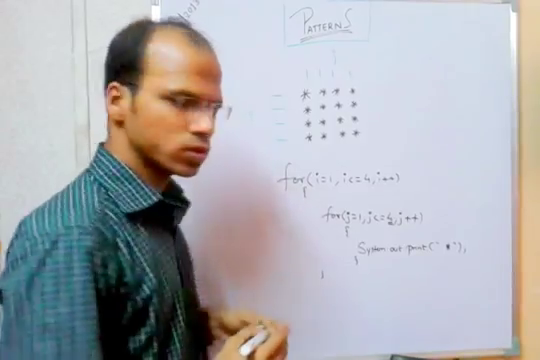 PATTERNS
* * * *
* * * *
* * * *
* * * *
for(i=1, i<=4, i++)
{
for(j=1, j<=4, j++)
{
System.out.print(" *");
}
}